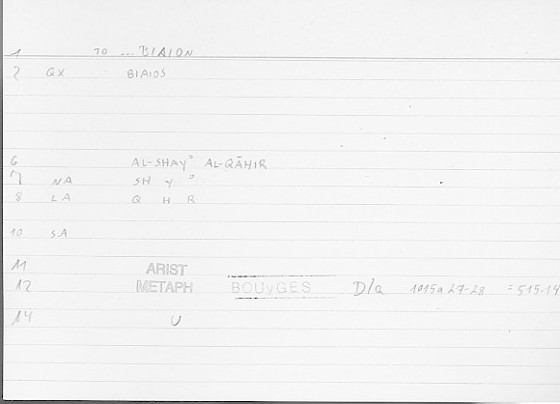 1 TO ... BIAION
2 QX BIAIOS
6 AL-SHAYʾ AL-QĀHIR
7 NA SH Y ʾ
8 LA Q H R
10 SA
11 ARIST
12 METAPH BOUYGES D/a 1015a 27-28 = 515.14
14 U